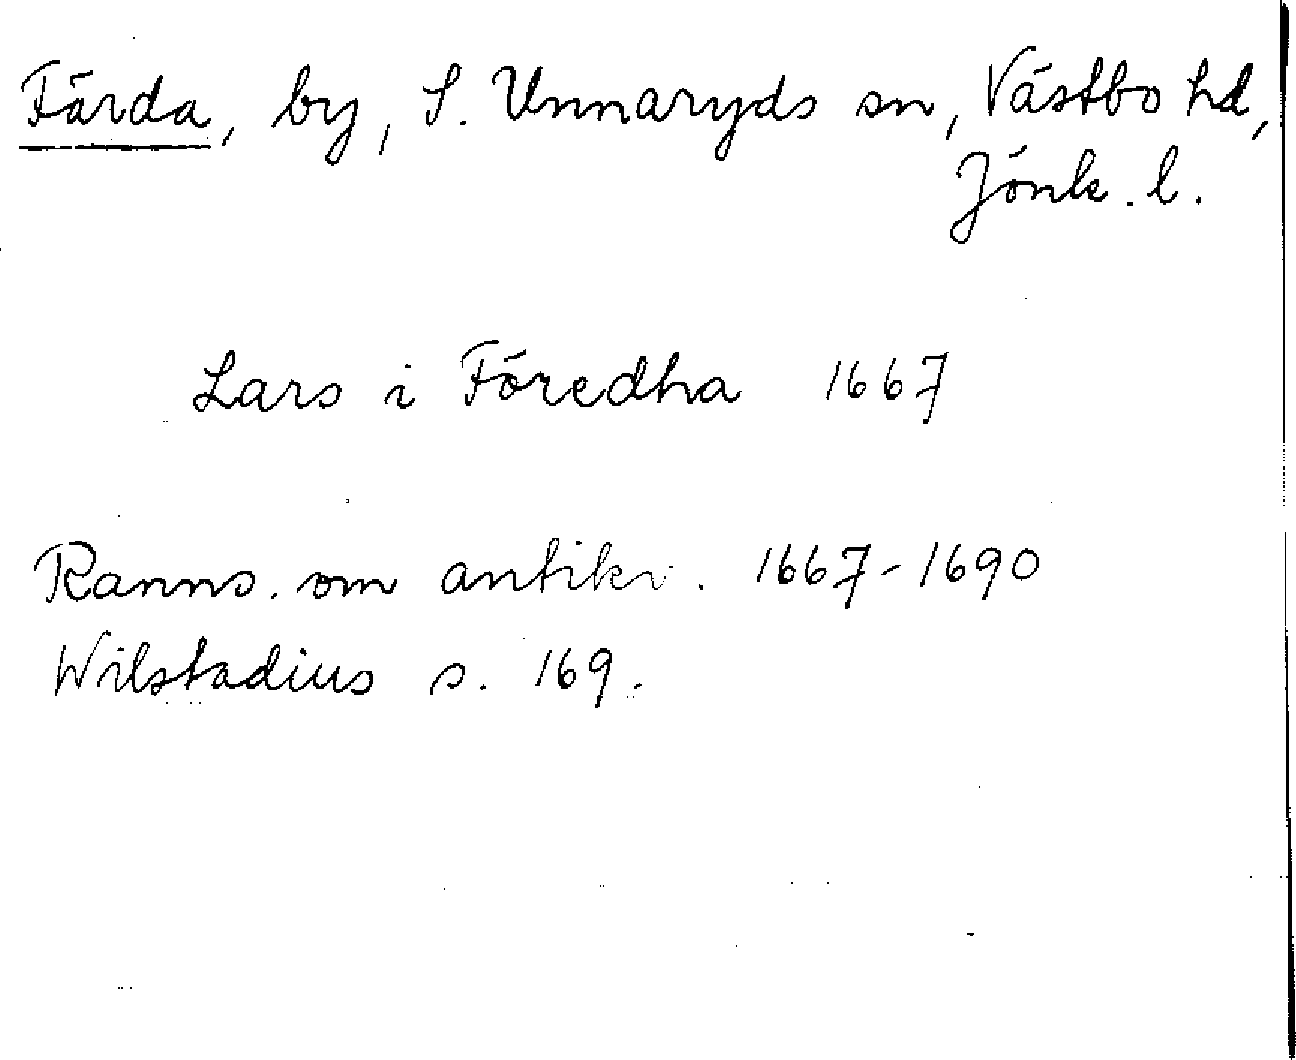 Färda, by, S. Unnaryds sn, Västbo hd,
Jönk. l.
Lars i Föredha 1667
Ranns. om antikv. 1667-1690
Wilstadius s. 169.